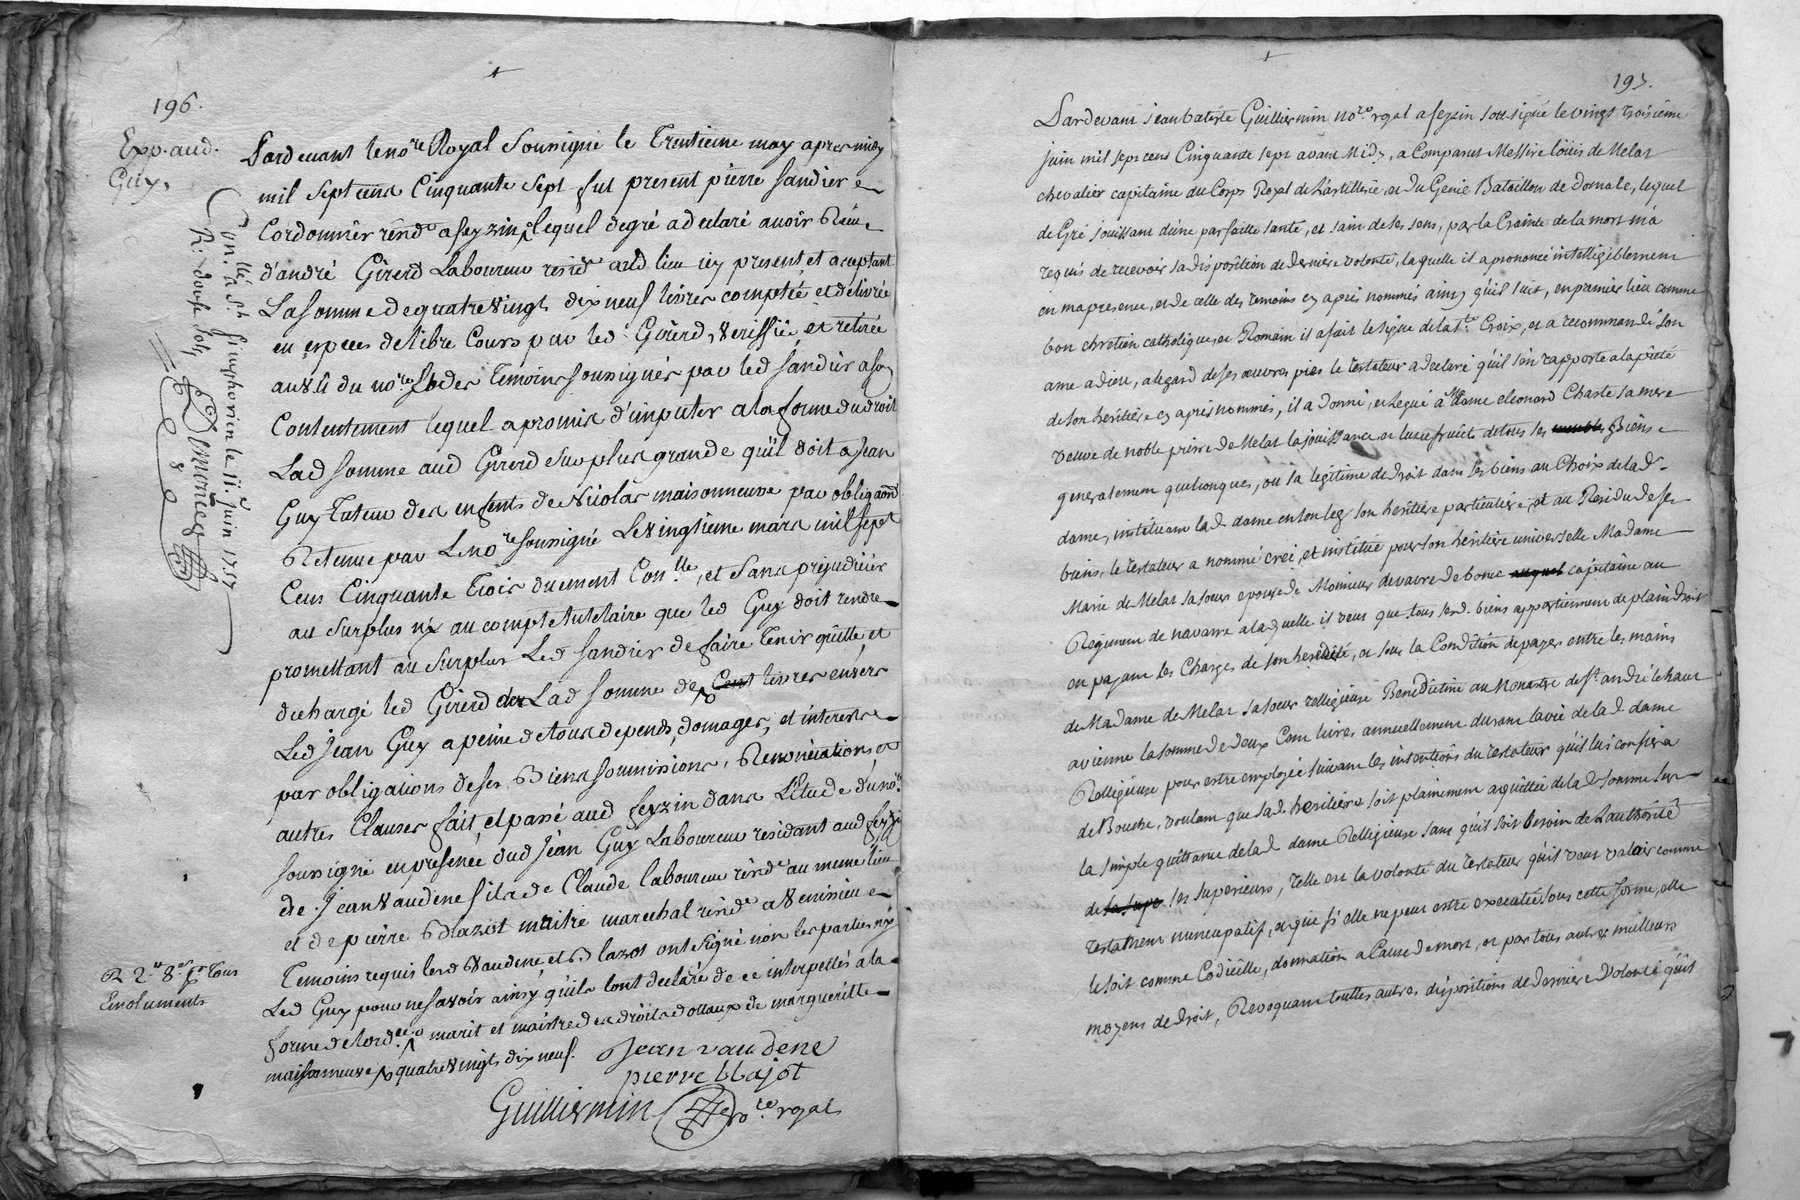 196.
Exp. aud.
Guy.
Con.lle à St. Simphorien le 11e. juin 1757
R. douse sols
Pardevant le no.re Royal Soussigné le Trentieme may apres midy
mil sept cens Cinquante sept fut present pierre Sandier
Cordonnier rend.t a feyzin lequel de gré a declaré avoir Reçu
d'andré Girerd Laboureur resid.t aud lieu icy present et aceptant
La somme de quatre vingt dix neuf livres comptée et delivrée
en especes de libre Cours par led. Girerd, veriffiée et retirée
au vû du no.re et des temoins soussignés par led sandier a son
Contentement lequel a promis d'imputer a la forme du droit
Lad somme aud Girerd sur plus grande qu'il doit a Jean
Guy Tuteur des enfents de Nicolas maisonneuve par obliga.on
Retenue par le no.re soussigné Le vingtieme mars mil sept
Cens Cinquante trois duement Con.lle, et Sans prejudicier
au Surplus ny au compte tutelaire que led Guy doit rendre
promettant au Surplus Led Sandier de faire tenir quitte et
decharge led Girerd de Lad somme de Cent livres envers
Led Jean Guy a peine de tous depends, domages, et interests
par obligations de ses Biens soumissions, Renonciations et
autres Clauses fait et passé aud feyzin dans L'Etude du no.re
soussigné en presence dud Jean Guy Laboureur residant aud feyzin
de Jean Vaudene fils de Claude laboureur rend.t au meme lieu
et de pierre Blazot maitre marechal rend.t a Venissieu
Temoins requis lesd Vaudene et Blazot ont signé non les parties ny
Led Guy pour ne savoir ainsy qu'ils l'ont declaré de ce interpellés a la
forme de l'ord.ce marit et maistre des droits dottaux de margueritte
maisonneuve quatre vingts dix neuf.
R 2.# 8.s pr Tous
Emoluments
Jean vaudene
pierre blajot
Guilliermin no.re royal
197.
Pardevant Jean batiste Guilliermin no.re royal a feyzin sousigné le vingt troisieme
juin mil sept cens Cinquante sept avant Midy, a Comparut Messire loüis de Melat
chevalier capitaine du Corps Royal de L'artillerie et du Genie Bataillon de dornale, lequel
de Gré Joüissant d'une parfaitte santé, et sain de ses sens, par la Crainte de la mort m'a
requis de recevoir sa disposition de derniere volonté, laquelle il a prononcé intelligiblement
en ma presence, et de celle des temoins cy après nommés ainsy qu'il suit, en premier lieu comme
bon chrétien catholique, et Romain il a fait le signe de la S.te Croix, et a recommandé son
ame a dieu, a l'egard de ses œuvres pies le testateur a declaré qu'il s'en rapporte a la piété
de son héritière cy après nommée, il a donné, et legué à Me dame eleonard Chaste sa mere
veuve de noble pierre de Melat la joüissance et lusufruits de tous les Biens
generalement quelconques, ou sa legitime de droit dans les biens au Choix de lad.
dame, instituant lad dame en son leg son heritiere particuliere, et au Residu de ses
biens, le testateur a nommé créé, et institué pour son heritière universelle Madame
Marie de Melat sa soeur epouse de Monsieur de vavre de bonce capitaine au
Régiment de navarre a laquelle il veut que tous sesd. biens appartiennent de plain droit
en payant les Charges de son heredité, et sous la Condition de payer entre les mains
de Madame de Melat sa soeur relligieuse Benedictine au Monastre de St. andré le haut
a vienne la somme de deux Cent livres annuellement durant la vie de lad. dame
Relligieuse pour estre employée suivant les intentions du testateur qu'il lui confiera
de Bouche, voulant que sad. heritière soit plainement aquittée de lad somme sur
la simple quittance de lad dame Relligieuse sans qu'il soit besoin de L'authorité
de ses superieurs, telle est la volonté du testateur qu'il veut valoir comme
testament nuncupatif, et que si elle ne peut estre executée sous cette forme, elle
le soit comme Codicille, donnation a Cause de mort, et par tous autres meilleurs
moyens de droit, Revoquant touttes autres dispositions de derniere Volonté qu'il